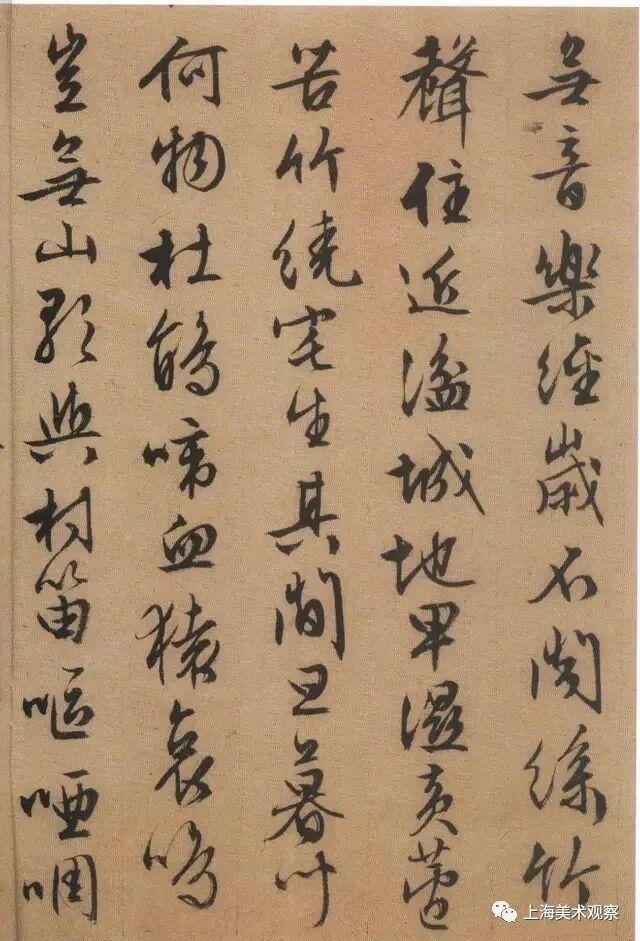 無音樂經歲不聞絲竹
聲住近湓城地卑濕黃蘆
苦竹繞宅生其間旦暮聞
何物杜鵑啼血猿哀鳴
豈無山歌與村笛嘔啞啁
上海美术观察